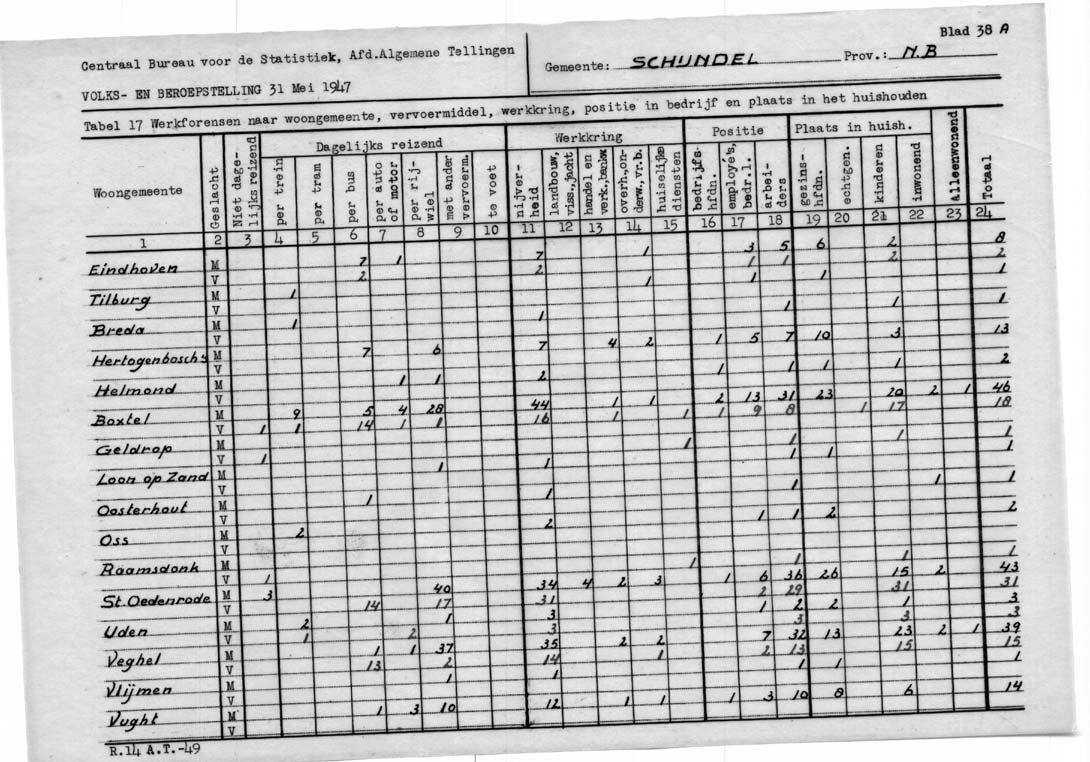 Blad 38 A
Centraal Bureau voor de Statistiek, Afd.Algemene Tellingen
Gemeente: SCHIJNDEL Prov.: N.B
VOLKS- EN BEROEPSTELLING 31 Mei 1947
Tabel 17 Werkforensen naar woongemeente, vervoermiddel, werkkring, positie in bedrijf en plaats in het huishouden
Woongemeente
Geslacht
Niet dage-
lijks reizend
Dagelijks reizend
per trein
per tram
per bus
per auto
of motor
per rij-
wiel
met ander
vervoerm.
te voet
Werkkring
nijver-
heid
landbouw,
viss., jacht
handel en
verk., bankw.
overh., on-
derw., vr.b.
huiselijke
diensten
Positie
bedrijfs-
hfdn.
employé's,
bedr.l.
arbei-
ders
Plaats in huish.
gezins-
hfdn.
echtgen.
kinderen
inwonend
Alleenwonend
Totaal
1 2 3 4 5 6 7 8 9 10 11 12 13 14 15 16 17 18 19 20 21 22 23 24
Eindhoven M 7 1 7 1 3 5 6 2 8
V 2 2 1 1 2 2
Tilburg M 1 1 1 1 1
V
Breda M 1 1 1 1 1
V
Hertogenbosch's M 7 6 7 4 2 1 5 7 10 3 13
V
Helmond M 1 1 2 1 1 1 1 2
V
Boxtel M 9 5 4 28 44 1 1 2 13 31 23 20 2 1 46
V 1 1 14 1 1 16 1 1 1 9 8 1 17 18
Geldrop M
V 1 1 1 1 1
Loon op Zand M 1 1 1 1 1
V
Oosterhout M 1 1 1 1 1
V
Oss M 2 2 1 1 2 2
V
Raamsdonk M
V 1 1 1 1 1
St.Oedenrode M 3 40 34 4 2 3 1 6 36 26 15 2 43
V 14 17 31 2 29 31 31
Uden M 2 1 3 1 2 2 1 3
V 1 2 3 3 3 3
Veghel M 1 1 37 35 2 2 7 32 13 23 2 1 39
V 13 2 14 1 2 13 15 15
Vlijmen M 1 1 1 1 1
V
Vught M 1 3 10 12 1 1 1 3 10 8 6 14
V
R.14 A.T.-49